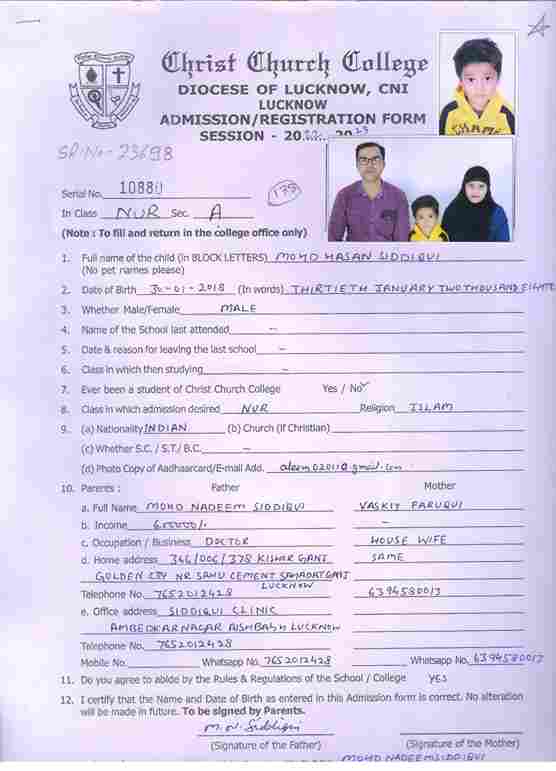 Christ Church College
DIOCESE OF LUCKNOW, CNI
LUCKNOW
ADMISSION/REGISTRATION FORM
SESSION - 20 2023
SR.No-23698
Serial No. 10880
179
In Class NUR Sec. A
(Note : To fill and return in the college office only)
1. Full name of the child (in BLOCK LETTERS) MOHD HASAN SIDDIQUI
(No pet names please)
2. Date of Birth 30-01-2018 (In words) THIRTIETH JANUARY TWO THOUSAND EIGHTE
3. Whether Male/Female MALE
4. Name of the School last attended -
5. Date & reason for leaving the last school -
6. Class in which then studying -
7. Ever been a student of Christ Church College Yes / No ✓
8. Class in which admission desired NUR Religion ISLAM
9. (a) Nationality INDIAN (b) Church (If Christian)
(c) Whether S.C. / S.T./ B.C. -
(d) Photo Copy of Aadhaarcard/E-mail Add.
10. Parents : Father Mother
a. Full Name MOHD NADEEM SIDDIQUI
b. Income 600000/. -
c. Occupation / Business DOCTOR HOUSE WIFE
d. Home address KISHOR GANJ SAME
GOLDEN CITY NR SAHU CEMENT
LUCKNOW
Telephone No. 7652012428
e. Office address SIDDIQUI CLINIC
AMBEDKAR NAGAR AISHBAGH LUCKNOW
Telephone No. 7652012428
Mobile No. Whatsapp No. 7652012428 Whatsapp No.
11. Do you agree to abide by the Rules & Regulations of the School / College YES
12. I certify that the Name and Date of Birth as entered in this Admission form is correct. No alteration
will be made in future. To be signed by Parents.
M. N. Siddiqui
(Signature of the Father) (Signature of the Mother)
MOHD NADEEM SIDDIQUI